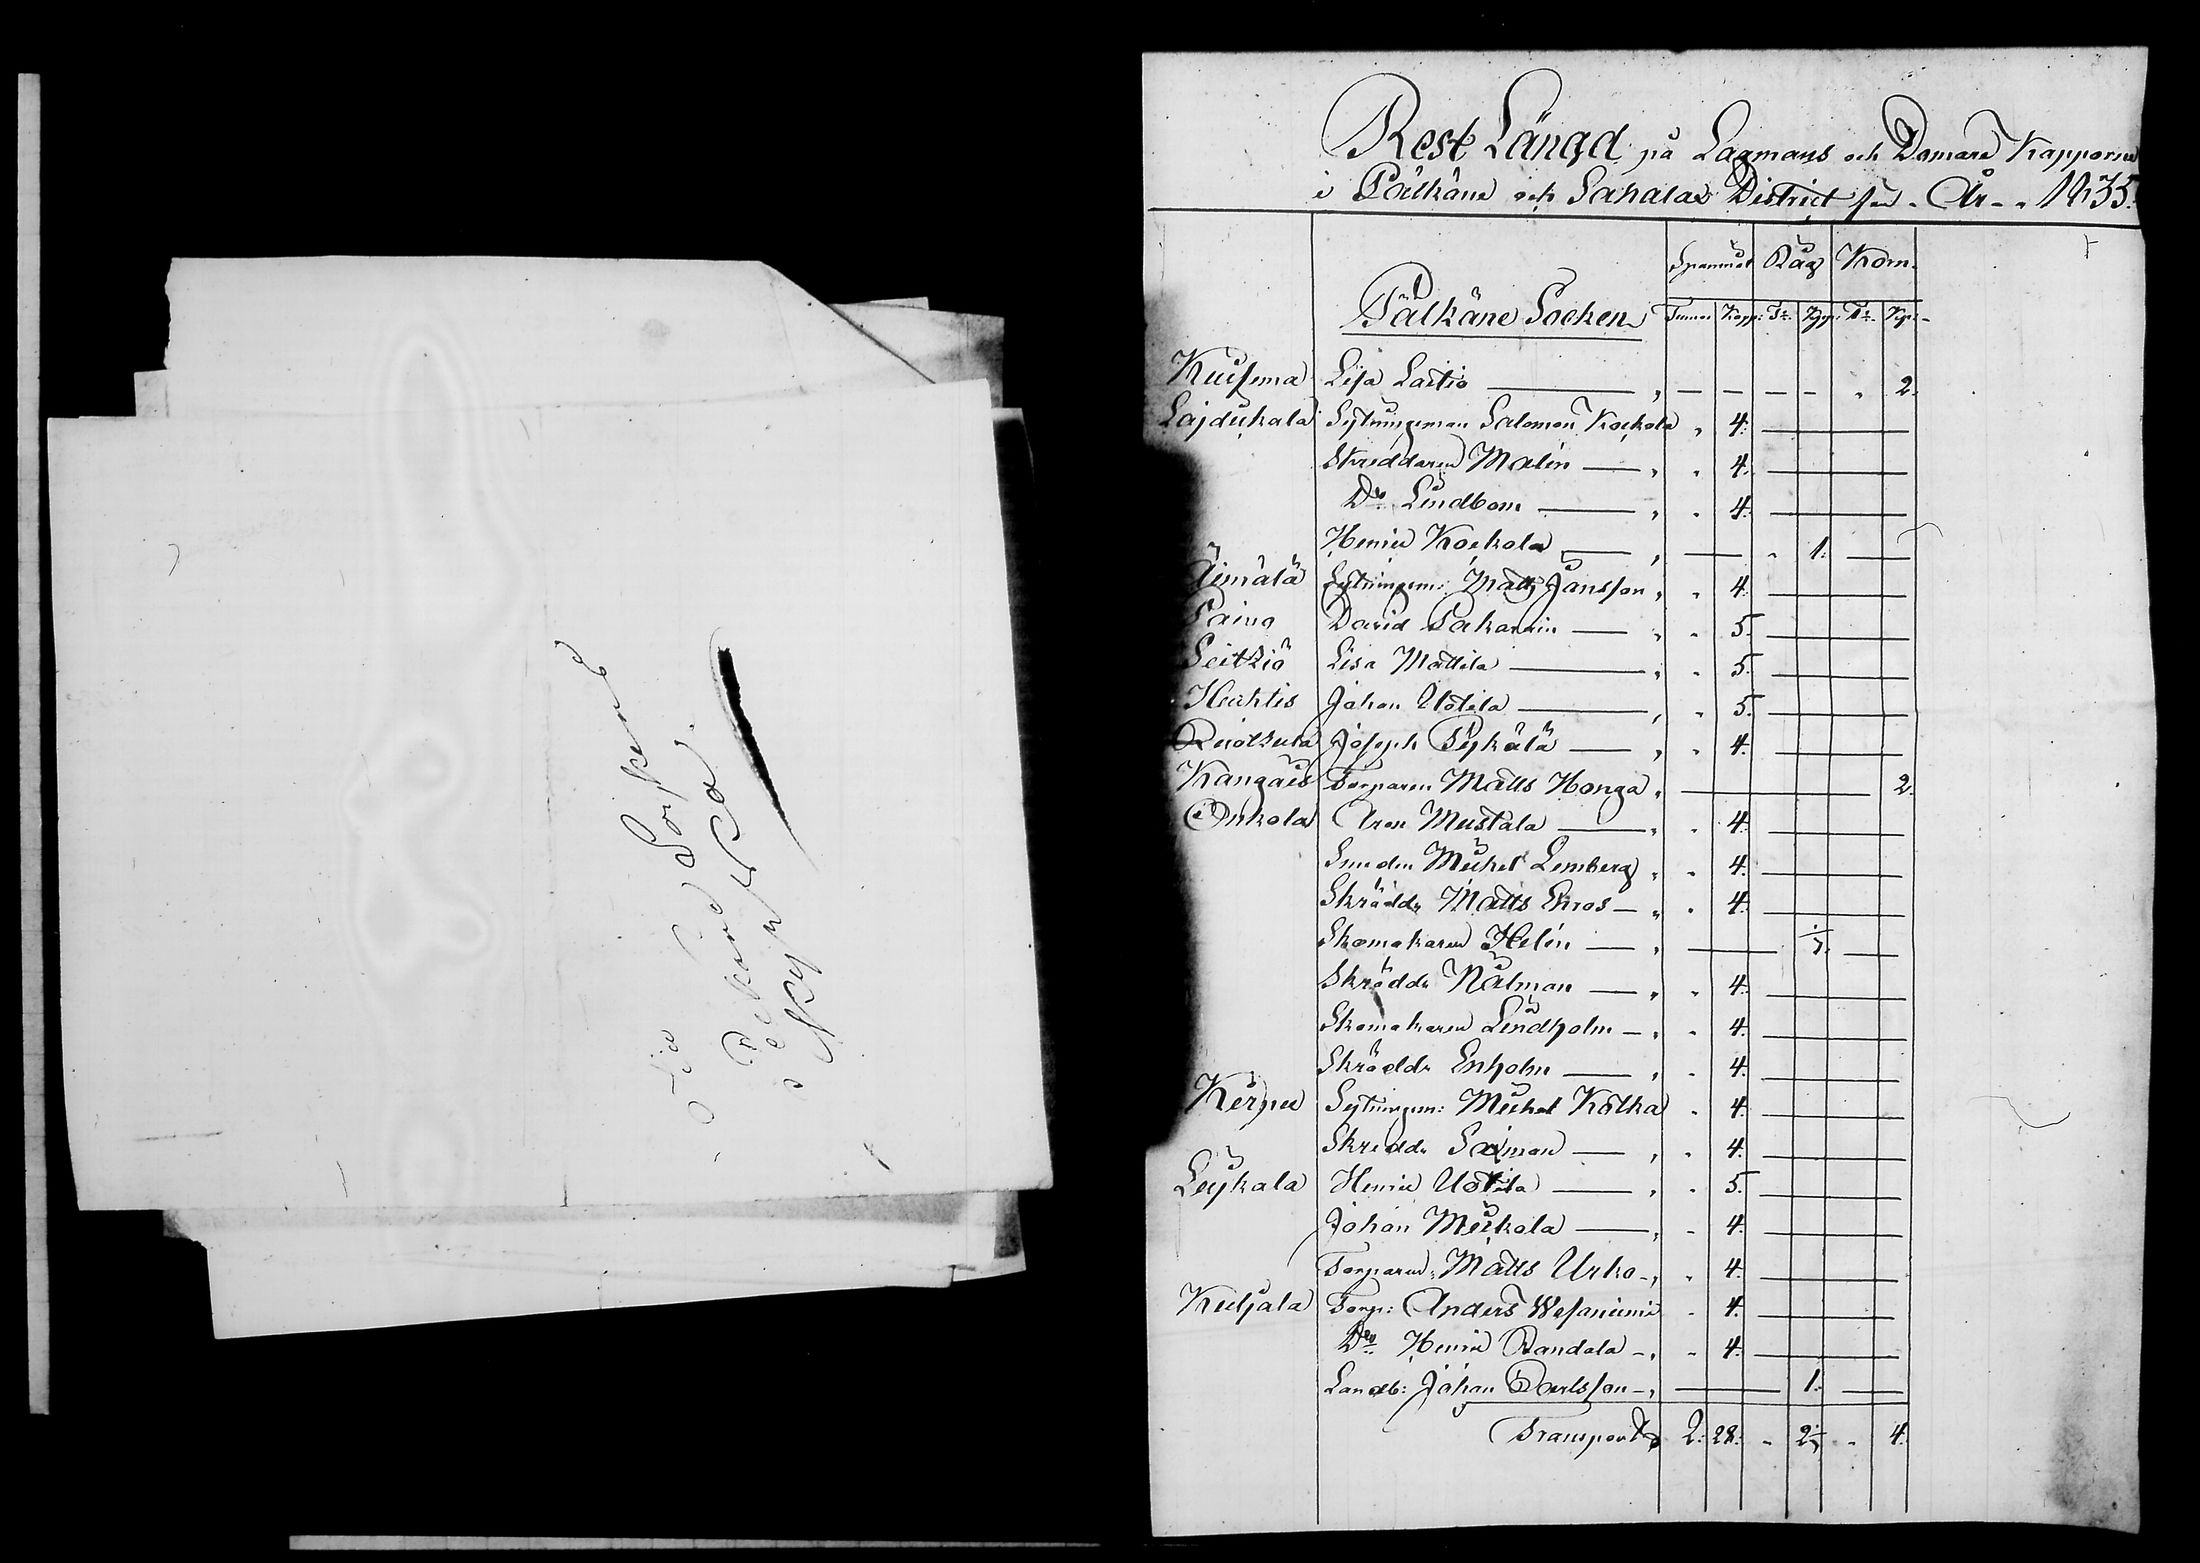 Rest Längd på Lagmans och Domare Kapporne
i Pälkäne och Sahalax District för År 1835.
Spanmål Råg Korn.
Pälkäne Socken Tunnor Kapp: Tr. Kpr: Tr. Kp:
Kuisema Lisa Laitio 2.
Lajdukala Sytningsman Salomon Kockola 4.
Skreddaren Malin 4.
Do Lindbom 4.
Henric Kockola 1.
Äimälä Sytningsm: Matts Jansson 4.
Paino David Pakarin 5.
Seitziö Lisa Mattila 5.
Huhtis Johan Uotila 5.
Joseph Pykälä 4.
Kangais Torparen Matts Honga 2.
Onkola Aron Mustala 4.
Smeden Michel Lemberg 4.
Skrädd: Matts Enros 4.
Skomakaren Helin
Skrädd: Nålman 4.
Skomakaren Lindholm 4.
Skrädd: Enholm 4.
Kerpu Sytningsm: Michel Kolka 4.
Skredd: Salman 4.
Luykala Henric Uotila 5.
Johan Muikola 4.
Torparen Matts Urko 4.
Kuljala Torp: Anders Wesaniemi 4.
Do Henric Randala 4.
Landb: Johan Carlsson 1.
Transport 2. 28. 4.